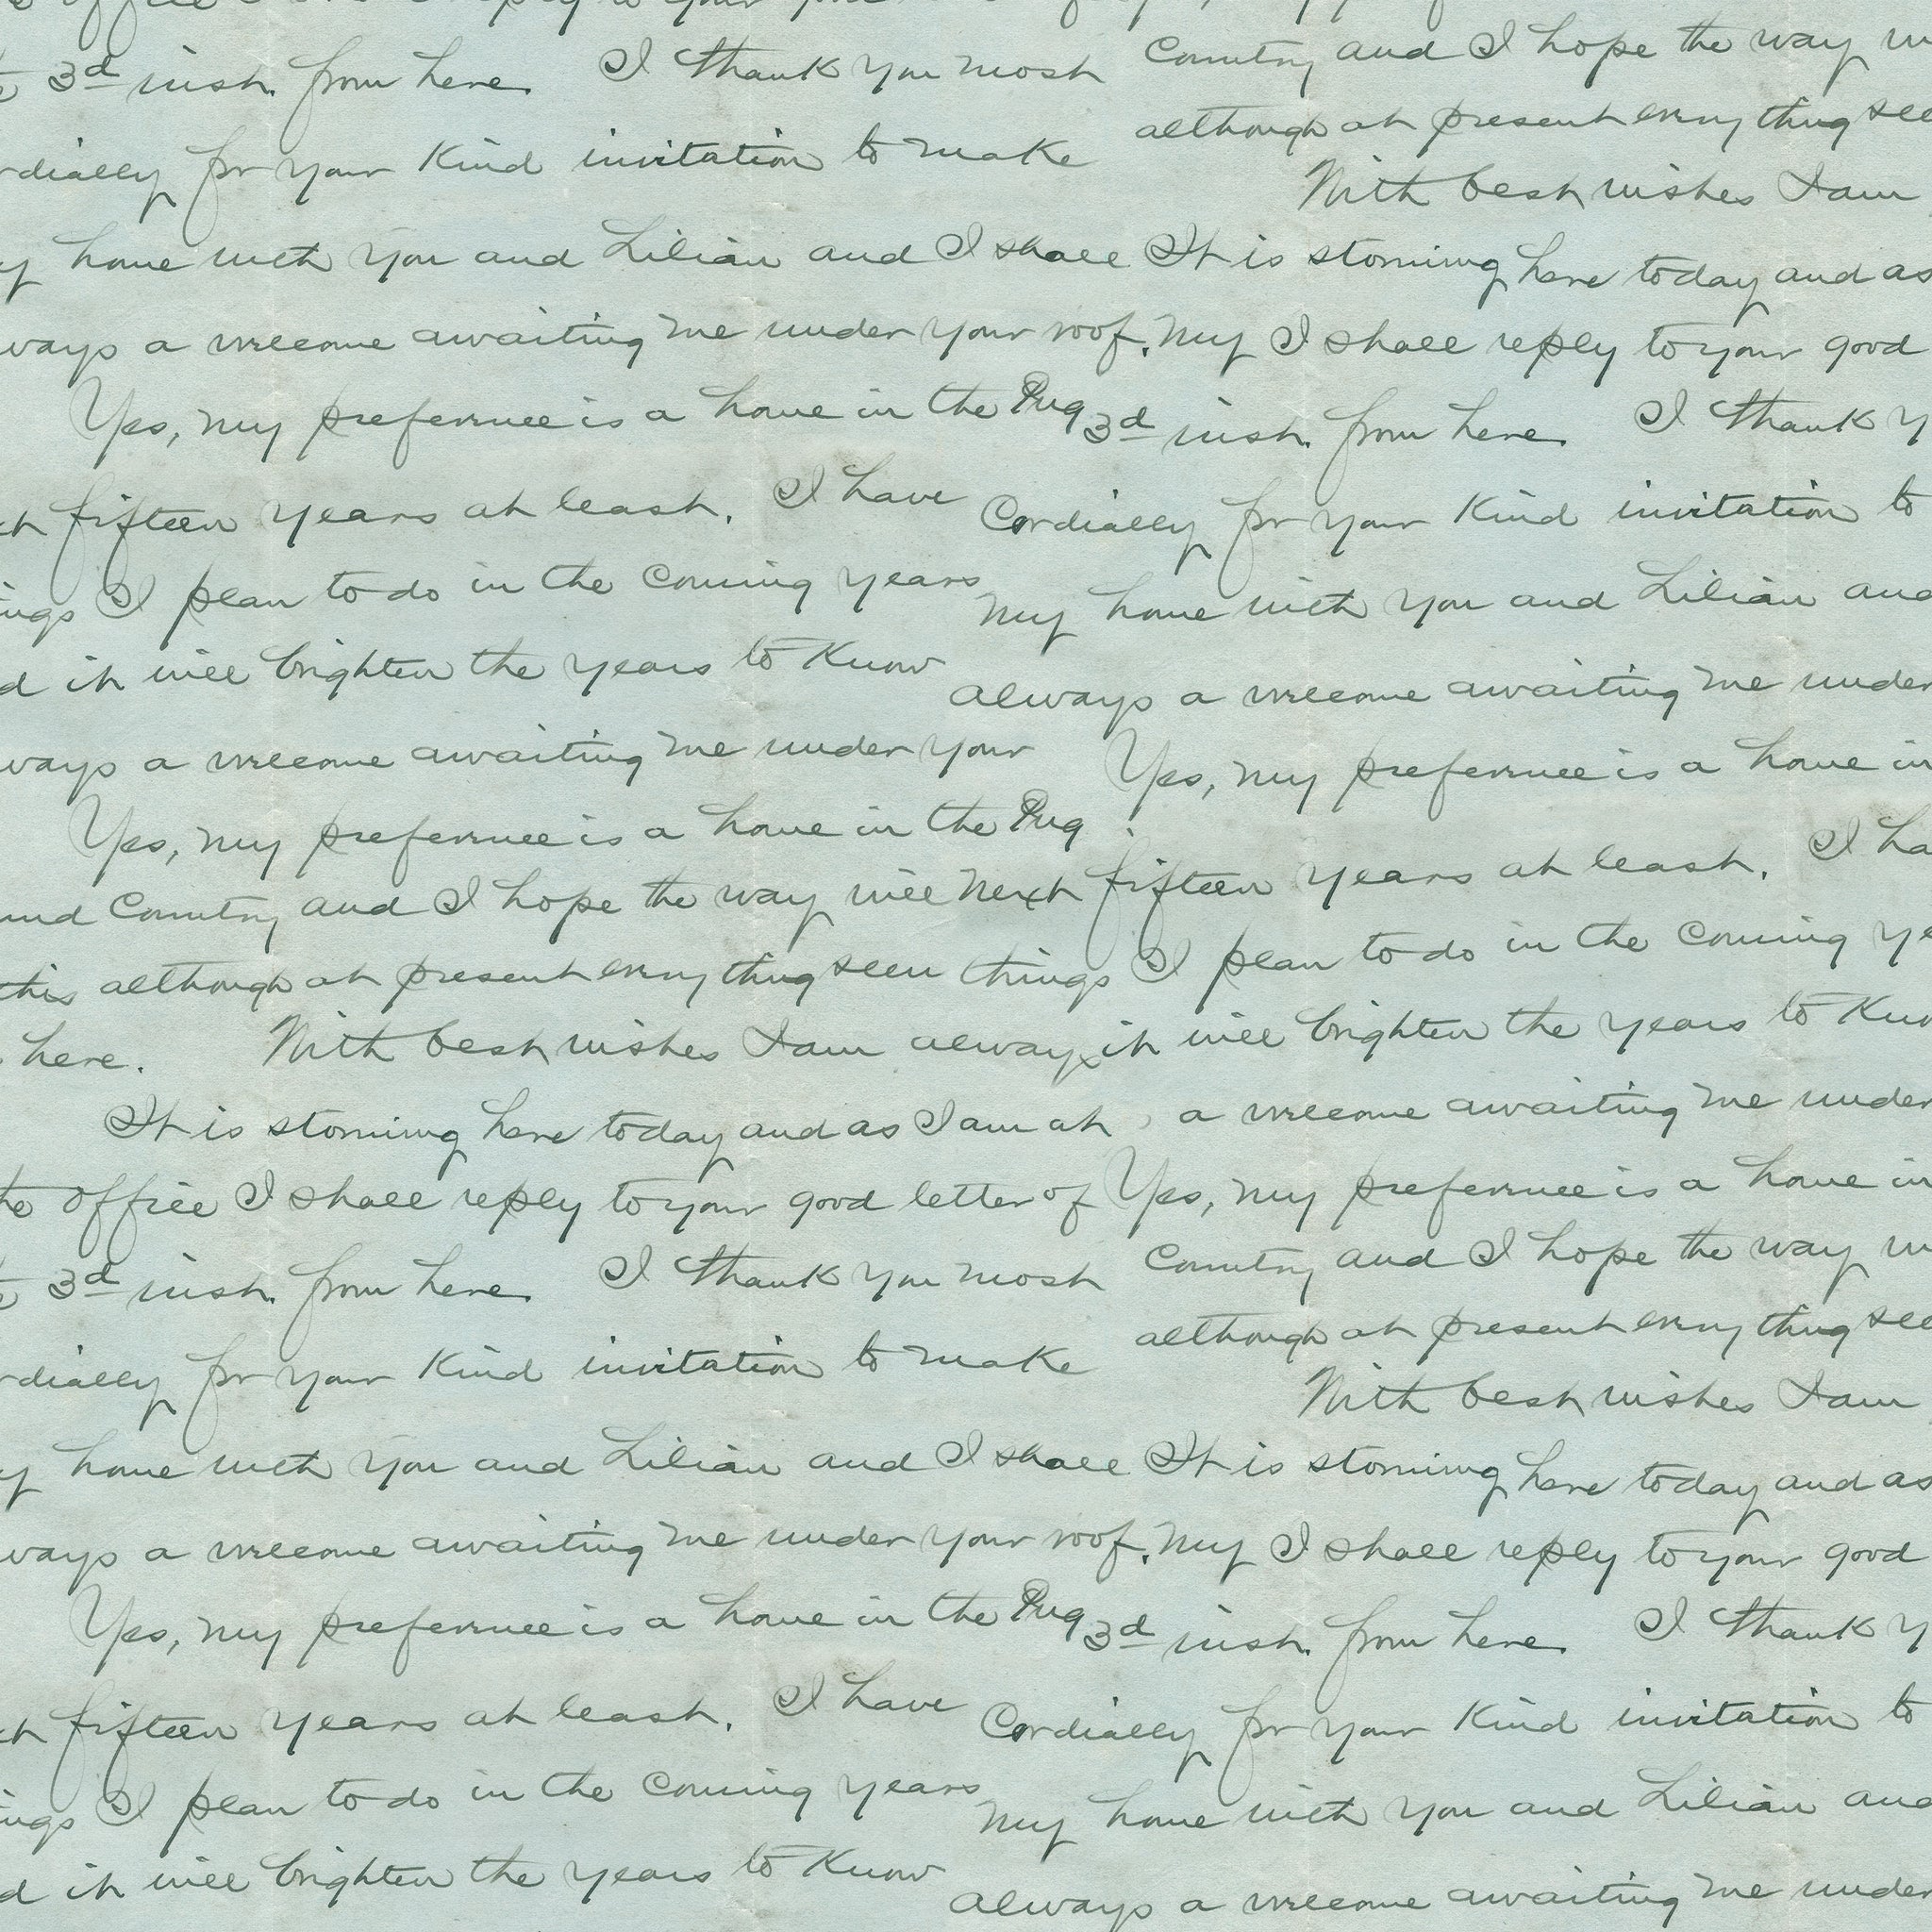 office I shall reply to your good
3d inst. from here. I thank you most Country and I hope the way
although at present every thing see
rdially for your kind invitation to make
With best wishes I am
y home with you and Lilian and I shall It is storming here today and as
ways a welcome awaiting me under your roof. My I shall reply to your good
Yes, my preference is a home in the Pug 3d inst. from here. I thank y
fifteen years at least. I have Cordially for your kind invitation to
ings I plan to do in the coming years
my home with you and Lilian and
d it will brighten the years to know
always a welcome awaiting me under
ways a welcome awaiting me under your
Yes, my preference is a home in
Yes, my preference is a home in the Pug
und Country and I hope the way will next fifteen years at least. I ha
this although at present every thing seem things I plan to do in the coming ye
here. With best wishes I am always it will brighten the years to know
It is storming here today and as I am at a welcome awaiting me under
the office I shall reply to your good letter of Yes, my preference is a home in
3d inst. from here. I thank you most Country and I hope the way
although at present every thing see
rdially for your kind invitation to make
With best wishes I am
y home with you and Lilian and I shall It is storming here today and as
ways a welcome awaiting me under your roof. My I shall reply to your good
Yes, my preference is a home in the Pug 3d inst. from here. I thank y
fifteen years at least. I have Cordially for your kind invitation to
ings I plan to do in the coming years
my home with you and Lilian and
d it will brighten the years to know
always a welcome awaiting me under